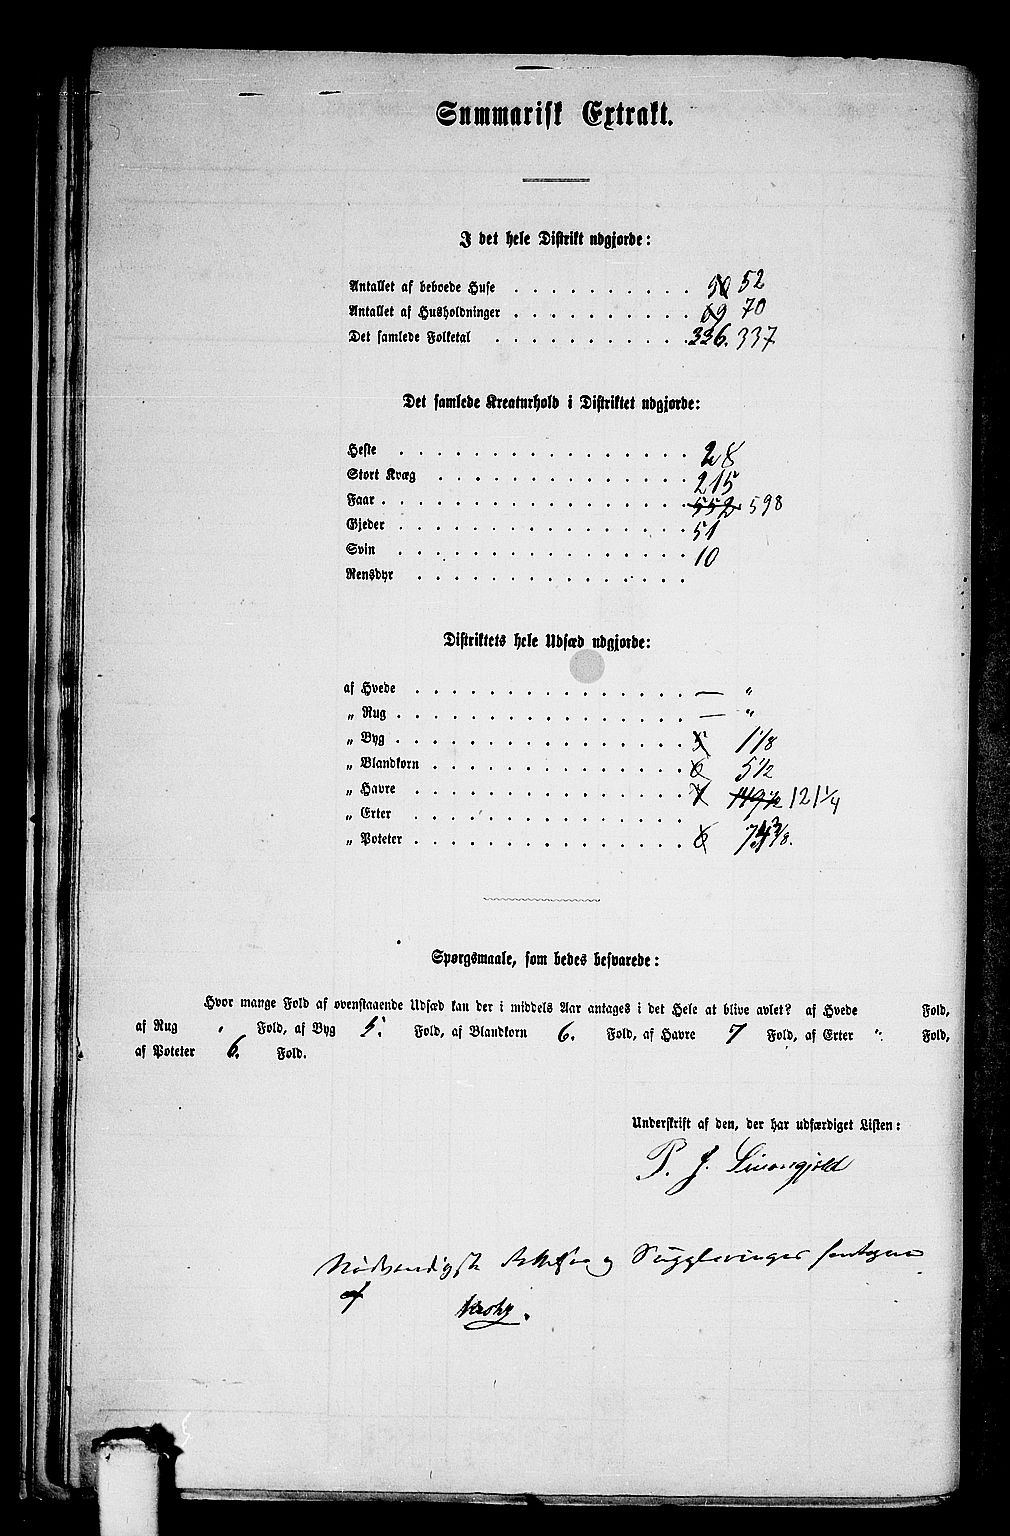 Summarisk Extrakt.
I det hele Distrikt udgjorde:
Antallet af beboede Huse . . . . . . . . . . 50 52
Antallet af Husholdninger . . . . . . . . . . 69 70
Det samlede Folketal . . . . . . . . . . . 336. 337
Det samlede Kreaturhold i Distriktet udgjorde:
Heste . . . . . . . . . . . . . . . 28
Stort Kvæg . . . . . . . . . . . . . 215
Faar . . . . . . . . . . . . . . . . 598
Gjeder . . . . . . . . . . . . . . . 51
Svin . . . . . . . . . . . . . . . 10
Rensdyr . . . . . . . . . . . . . .
Distriktets hele Udsæd udgjorde:
af Hvede . . . . . . . . . . . . . . — "
„ Rug . . . . . . . . . . . . . . . — "
„ Byg . . . . . . . . . . . . . . . 5 1 1/8
„ Blandkorn . . . . . . . . . . . . . 6 5 1/2
„ Havre . . . . . . . . . . . . . . 7 119 1/2 121 1/4
„ Erter . . . . . . . . . . . . . .
„ Poteter . . . . . . . . . . . . . . 6
Spørgsmaale, som bedes besvarede:
Hvor mange Fold af ovenstaaende Udsæd kan der i middels Aar antages i det Hele at blive avlet? af Hvede Fold,
af Rug " Fold, af Byg 5. Fold, af Blandkorn 6. Fold, af Havre 7 Fold, af Erter ". Fold,
af Poteter 6. Fold.
Underskrift af den, der har udfærdiget Listen:
P. J.
Nødvendigste
af